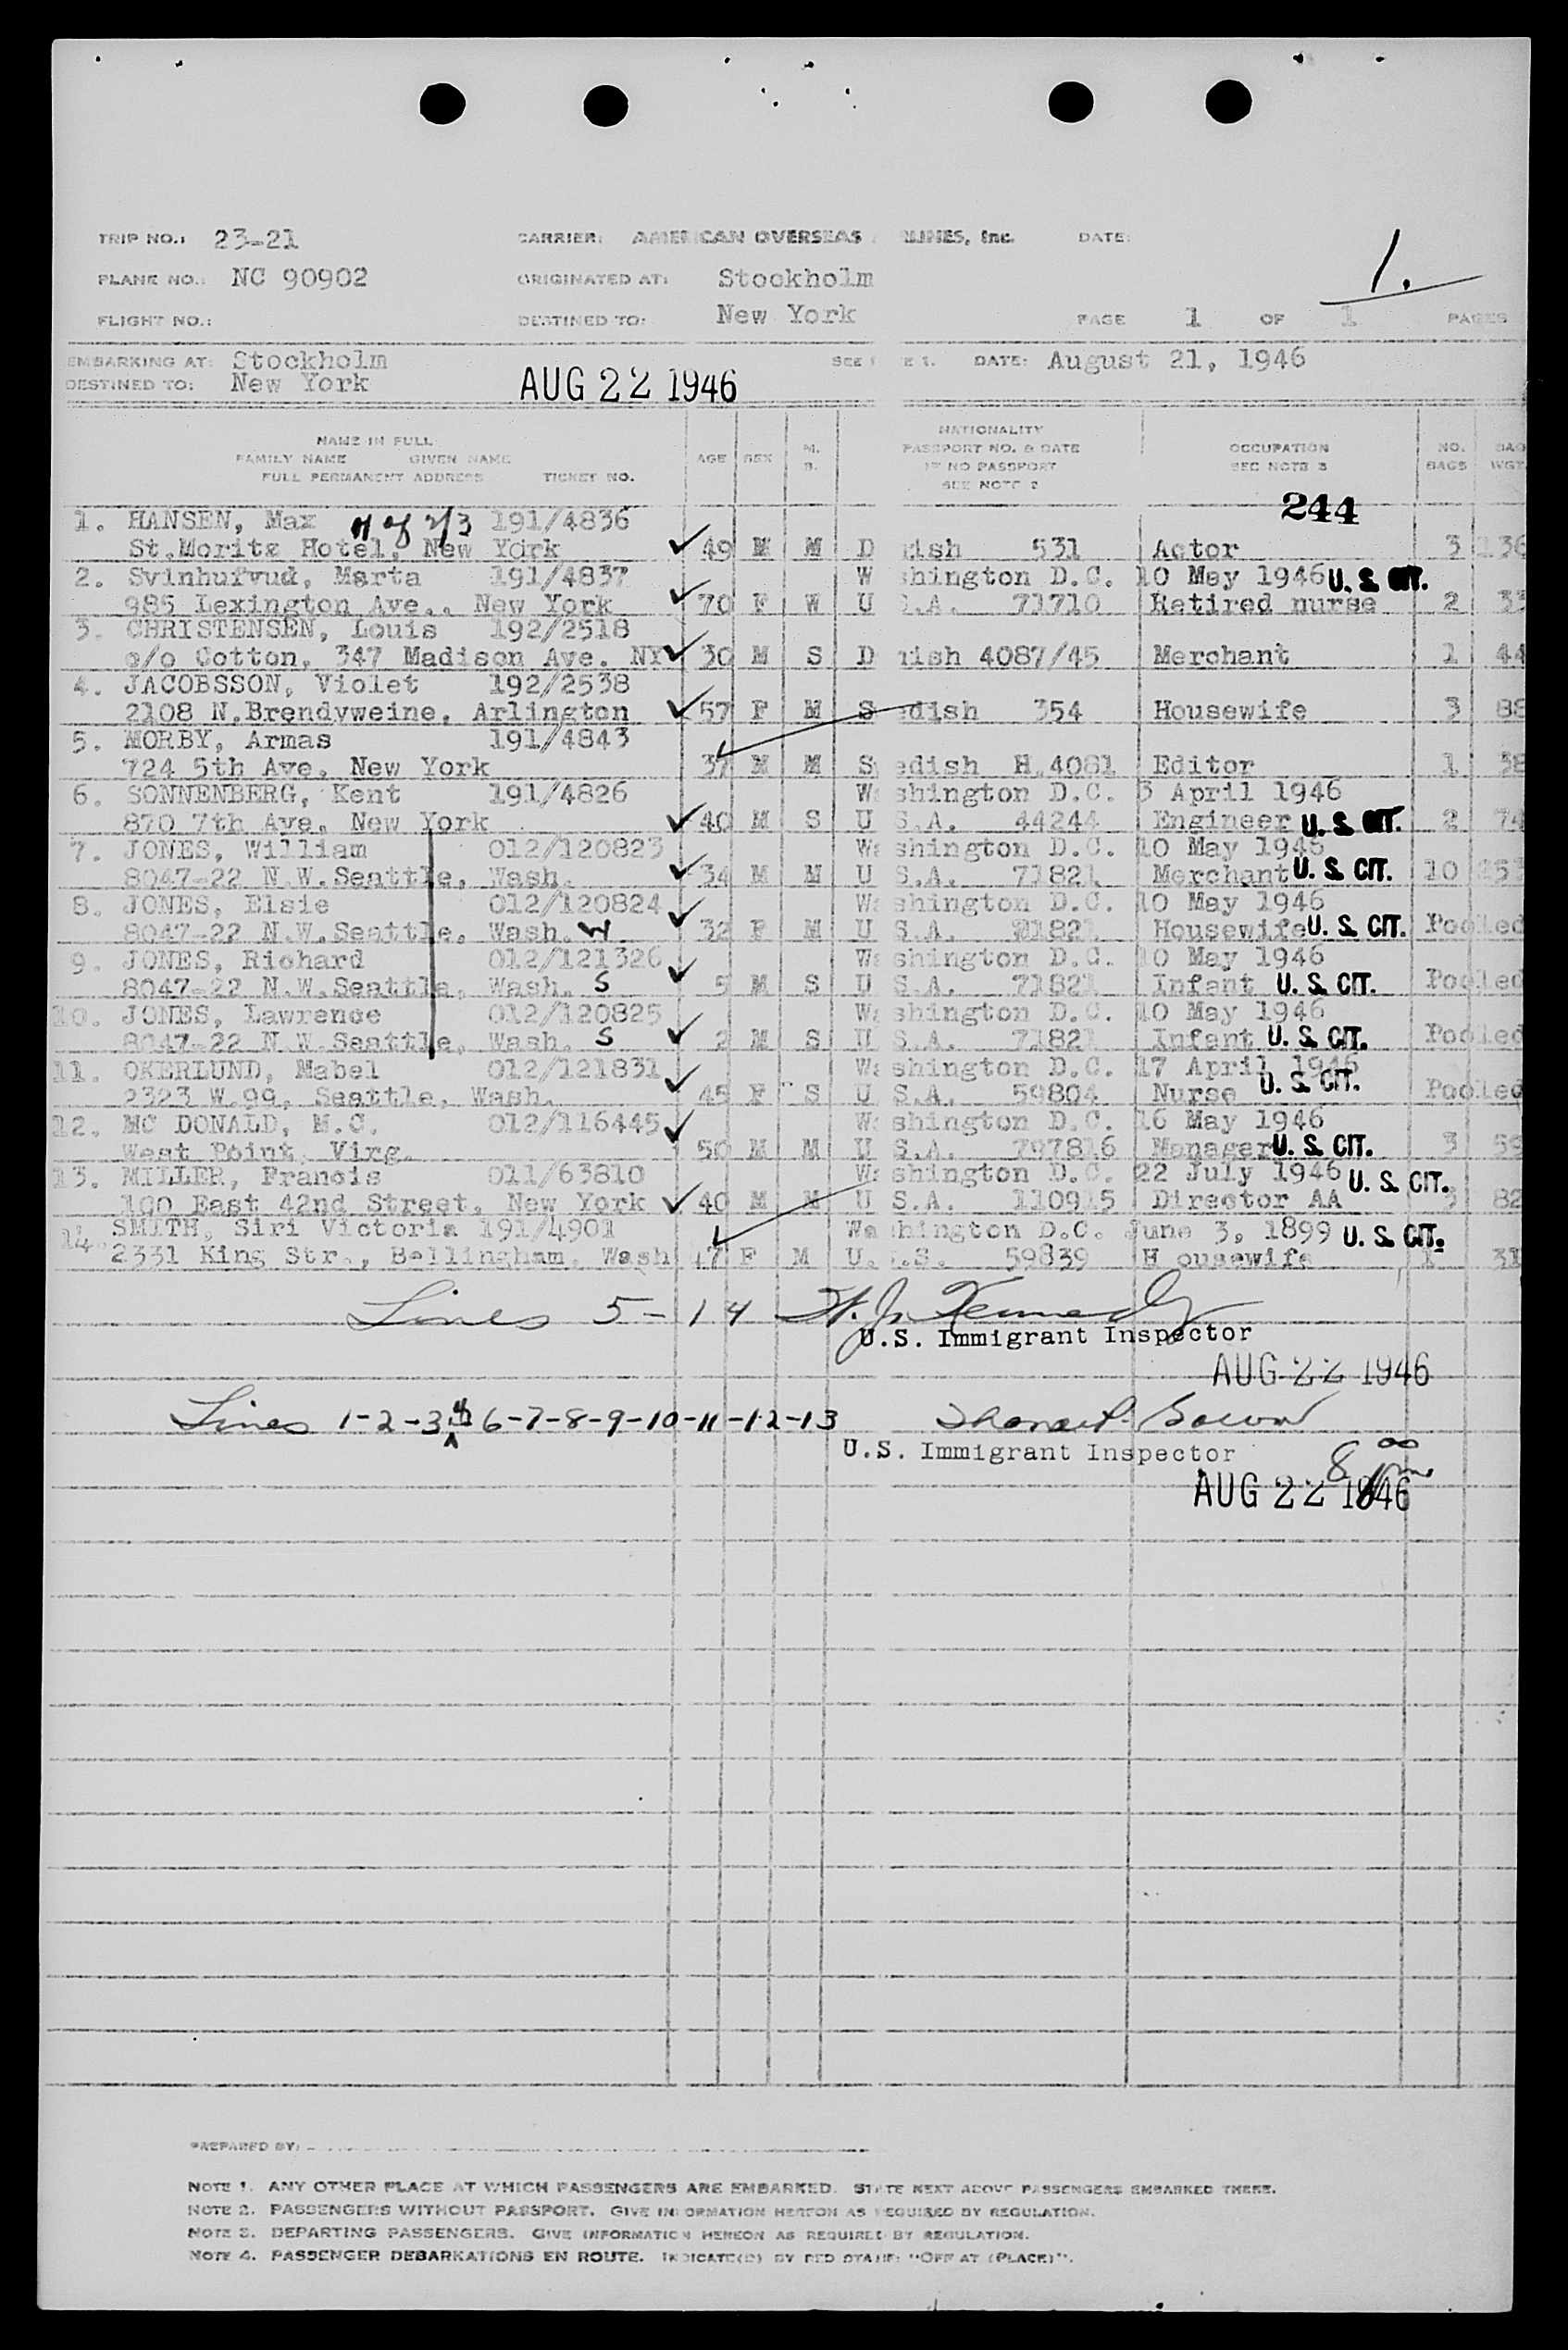 TRIP NO.: 23-21 CARRIER: AMERICAN OVERSEAS RLINES, Inc. DATE:
1.
PLANE NO.: NC 90902 ORIGINATED AT: Stockholm
FLIGHT NO.: DESTINED TO: New York PAGE 1 OF 1 PAGES
EMBARKING AT: Stockholm SEE E 1. DATE: August 21, 1946
DESTINED TO: New York AUG 22 1946
NAME IN FULL
FAMILY NAME GIVEN NAME
FULL PERMANENT ADDRESS TICKET NO. AGE SEX M. S. NATIONALITY PASSPORT NO. & DATE IF NO PASSPORT SEE NOTE 2 OCCUPATION SEE NOTE 3 NO. BAGS BAG WGT.
244
1. HANSEN, Max 191/4836
St.Moritz Hotel, New York 49 M M D nish 531 Actor 3 136
2. Svinhufvud, Marta 191/4837 W shington D.C. 10 May 1946 U. S. CIT.
985 Lexington Ave., New York 70 F W U S.A. 71710 Retired nurse 2 33
3. CHRISTENSEN, Louis 192/2518
c/o Cotton, 347 Madison Ave. NY 30 M S D nish 4087/45 Merchant 1 44
4. JACOBSSON, Violet 192/2538
2108 N.Brendyweine, Arlington 57 F M S edish 354 Housewife 3 88
5. MORBY, Armas 191/4843
724 5th Ave. New York 37 M M S edish H.4081 Editor 1 38
6. SONNENBERG, Kent 191/4826 Wa shington D.C. 3 April 1946
870 7th Ave. New York 40 M S U S.A. 44244 Engineer U. S. CIT. 2 74
7. JONES, William 012/120823 Wa shington D.C. 10 May 1946
8047-22 N.W.Seattle, Wash. 34 M M U S.A. 71821 Merchant U. S. CIT. 10 253
8. JONES, Elsie 012/120824 Wa shington D.C. 10 May 1946
8047-22 N.W.Seattle, Wash. W 32 F M U S.A. 71821 Housewife U. S. CIT. Pooled
9. JONES, Richard 012/121326 Wa shington D.C. 10 May 1946
8047-22 N.W.Seattle, Wash. S 5 M S U S.A. 71821 Infant U. S. CIT. Pooled
10. JONES, Lawrence 012/120825 Wa shington D.C. 10 May 1946
8047-22 N.W.Seattle, Wash. S 2 M S U S.A. 71821 Infant U. S. CIT. Pooled
11. OKERLUND, Mabel 012/121831 Wa shington D.C. 17 April 1946
2323 W.99, Seattle, Wash. 45 F S U S.A. 59804 Nurse U. S. CIT. Pooled
12. MC DONALD, M.C. 012/116445 Wa shington D.C. 16 May 1946
West Point, Virg. 50 M M U S.A. 797816 Manager U. S. CIT. 3 59
13. MILLER, Francis 011/63810 Wa shington D.C. 22 July 1946 U. S. CIT.
100 East 42nd Street, New York 40 M M U S.A. 110915 Director AA 3 82
14. SMITH, Siri Victoria 191/4901 Wa hington D.C. June 3, 1899 U. S. CIT.
2331 King Str., Bellingham, Wash 47 F M U. .S. 59839 H ousewife 1 31
Lines 5-14 Kennedy
U.S. Immigrant Inspector
AUG 22 1946
Lines 1-2-3 4 6-7-8-9-10-11-12-13
U.S. Immigrant Inspector
8 00 pm
AUG 22 1946
PREPARED BY:
NOTE 1. ANY OTHER PLACE AT WHICH PASSENGERS ARE EMBARKED. STATE NEXT ABOVE PASSENGERS EMBARKED THERE.
NOTE 2. PASSENGERS WITHOUT PASSPORT. GIVE INFORMATION HEREON AS REQUIRED BY REGULATION.
NOTE 3. DEPARTING PASSENGERS. GIVE INFORMATION HEREON AS REQUIRED BY REGULATION.
NOTE 4. PASSENGER DEBARKATIONS EN ROUTE. INDICATE(D) BY RED STAMP: "OFF AT (PLACE)".